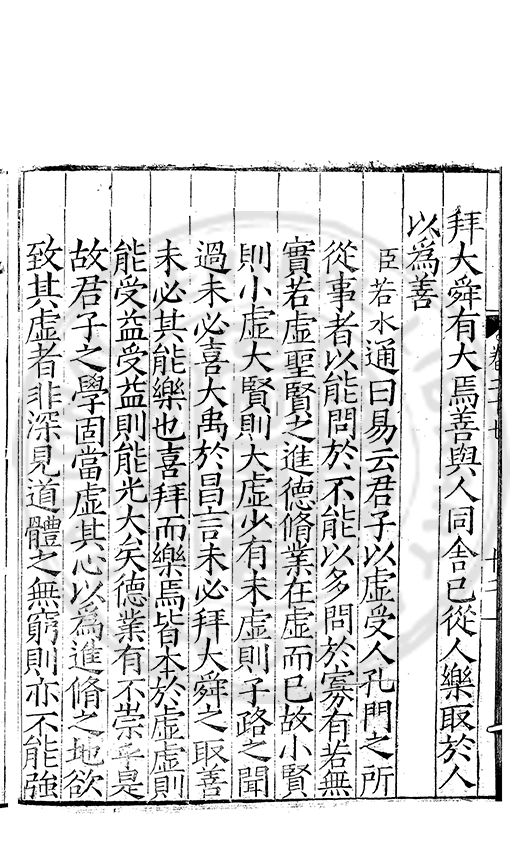 拜大舜有大焉善與人同舍己從人樂取於人
以爲善
臣若水通曰易云君子以虛受人孔門之所
從事者以能問於不能以多問於寡有若無
實若虛聖賢之進德脩業在虛而已故小賢
則小虛大賢則大虛少有未虛則子路之聞
過未必喜大禹於昌言未必拜大舜之取善
未必其能樂也喜拜而樂焉皆本於虛虛則
能受益受益則能光大矣德業有不崇乎是
故君子之學固當虛其心以爲進脩之地欲
致其虛者非深見道體之無窮則亦不能強